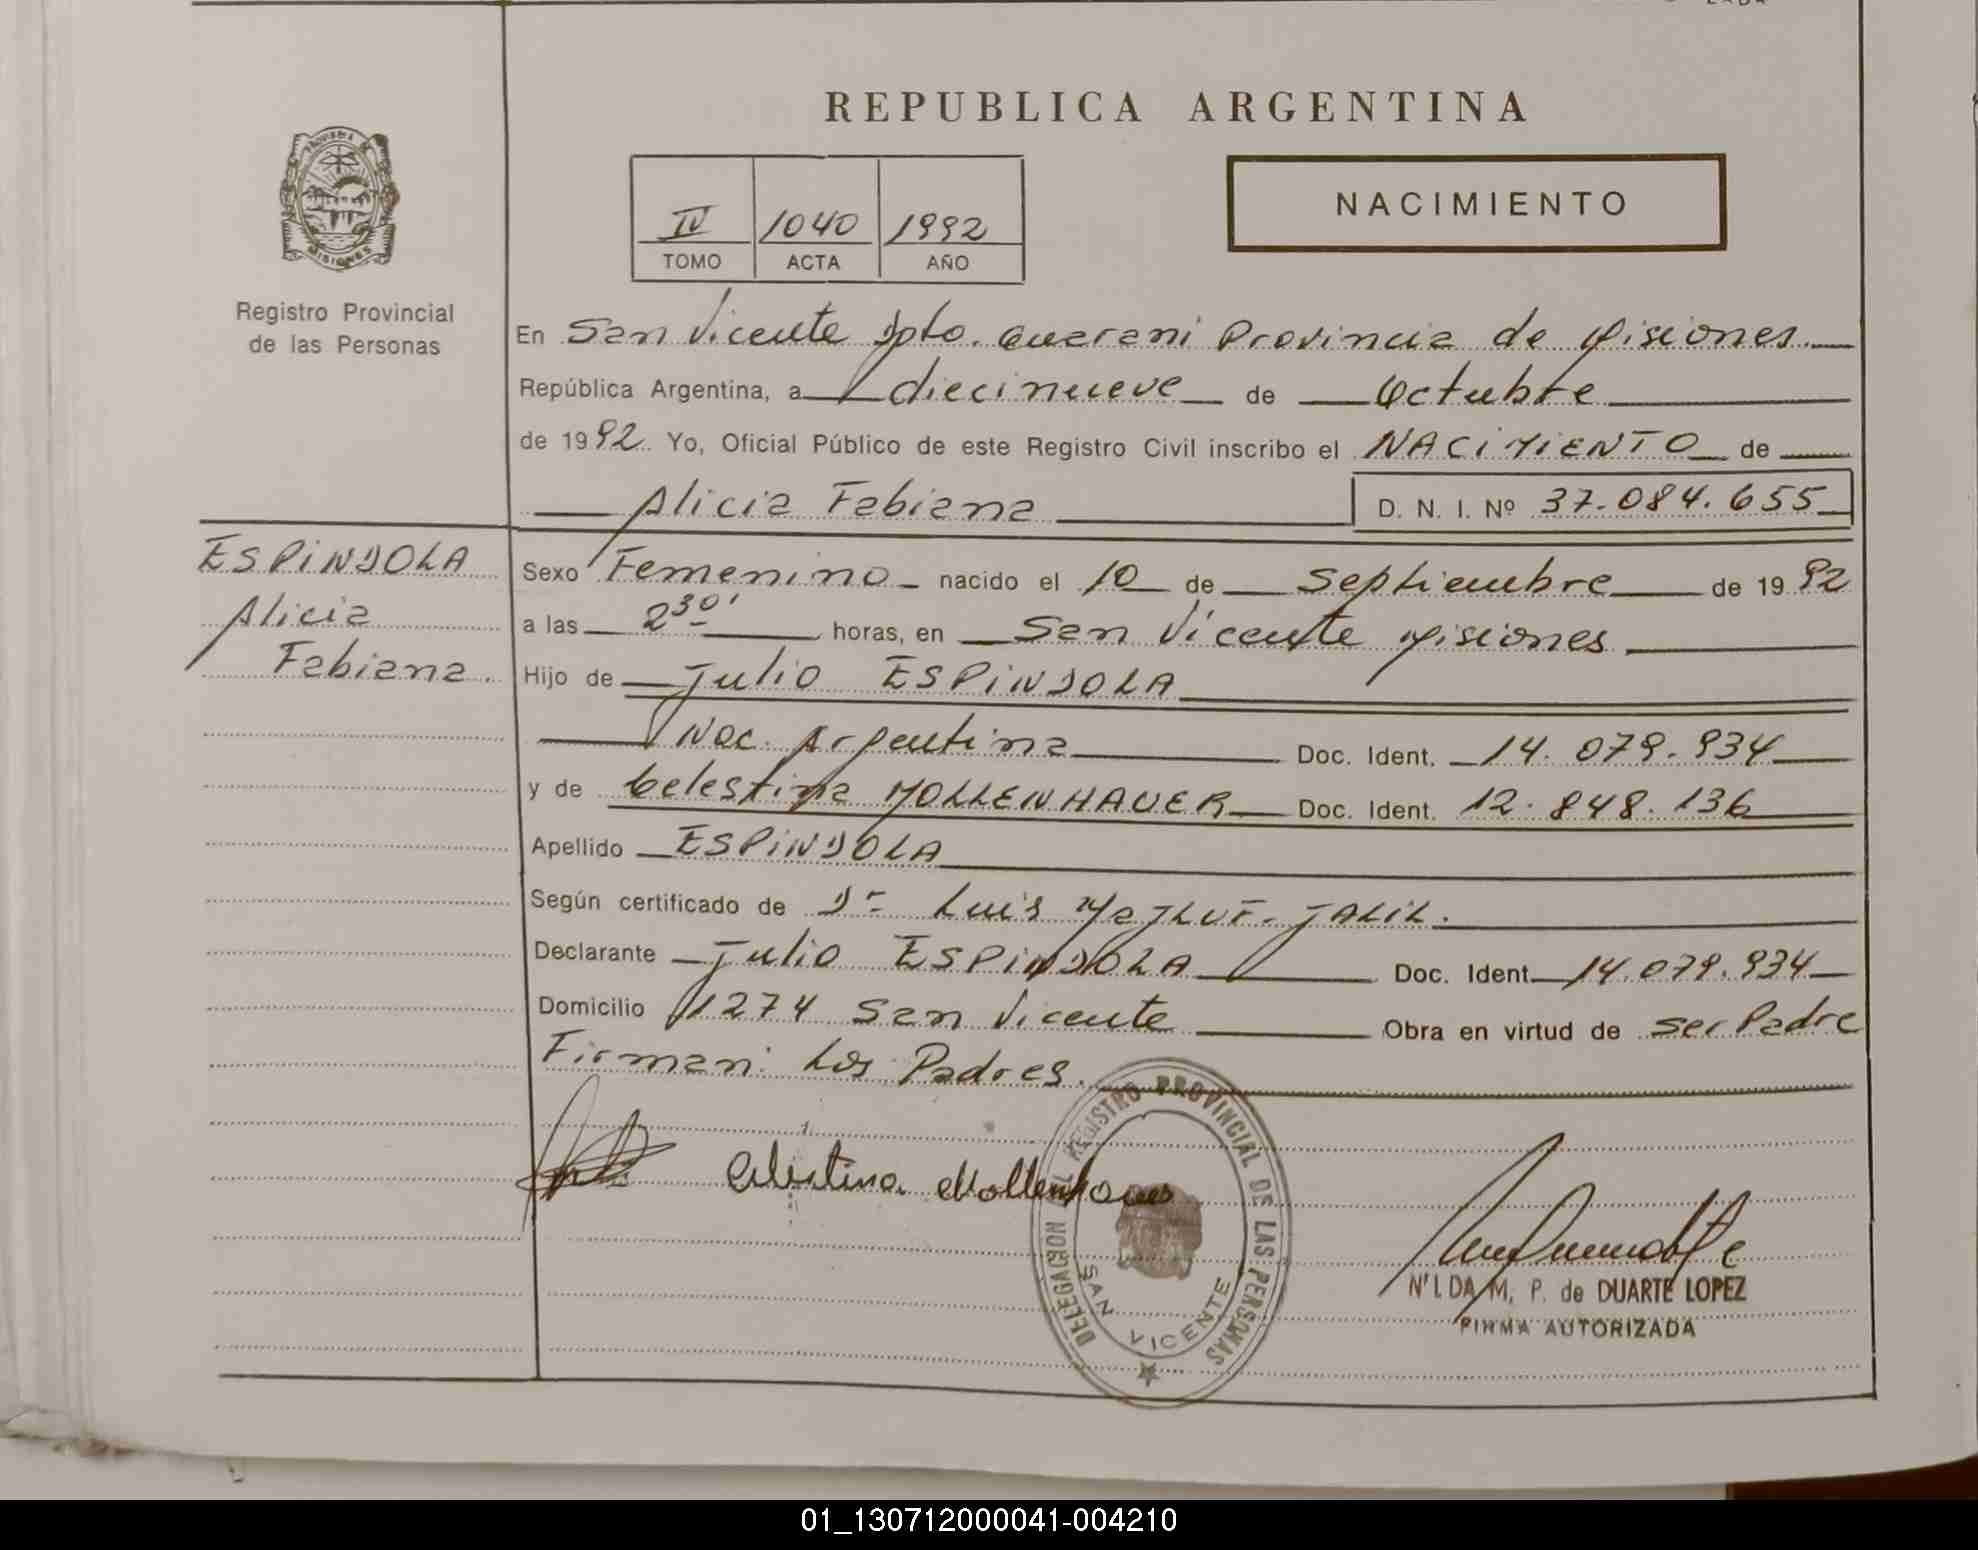 REPUBLICA ARGENTINA
NACIMIENTO
IV 1040 1992
TOMO ACTA AÑO
Registro Provincial
de las Personas
En San Vicente Dpto. Guarani Provincia de Misiones.
República Argentina, a diecinueve de Octubre
de 1992. Yo, Oficial Público de este Registro Civil inscribo el NACIMIENTO de
Alicia Fabiana D. N. I. Nº 37.084.655
ESPINDOLA
Alicia
Fabiana.
Sexo Femenino nacido el 10 de Septiembre de 1992
a las 2 30' horas, en San Vicente Misiones
Hijo de Julio ESPINDOLA
Nac. Argentina Doc. Ident. 14.079.934
y de Celestina MOLLENHAUER Doc. Ident. 12.848.136
Apellido ESPINDOLA
Según certificado de Dr Luis JALIL.
Declarante Julio ESPINDOLA Doc. Ident. 14.079.934
Domicilio 1274 San Vicente Obra en virtud de ser Padre
Firman: Los Padres.
Celestina Mollenhauer
DELEGACION DEL REGISTRO PROVINCIAL DE LAS PERSONAS
SAN VICENTE
N'LDA M. P. de DUARTE LOPEZ
FIRMA AUTORIZADA
01_130712000041-004210